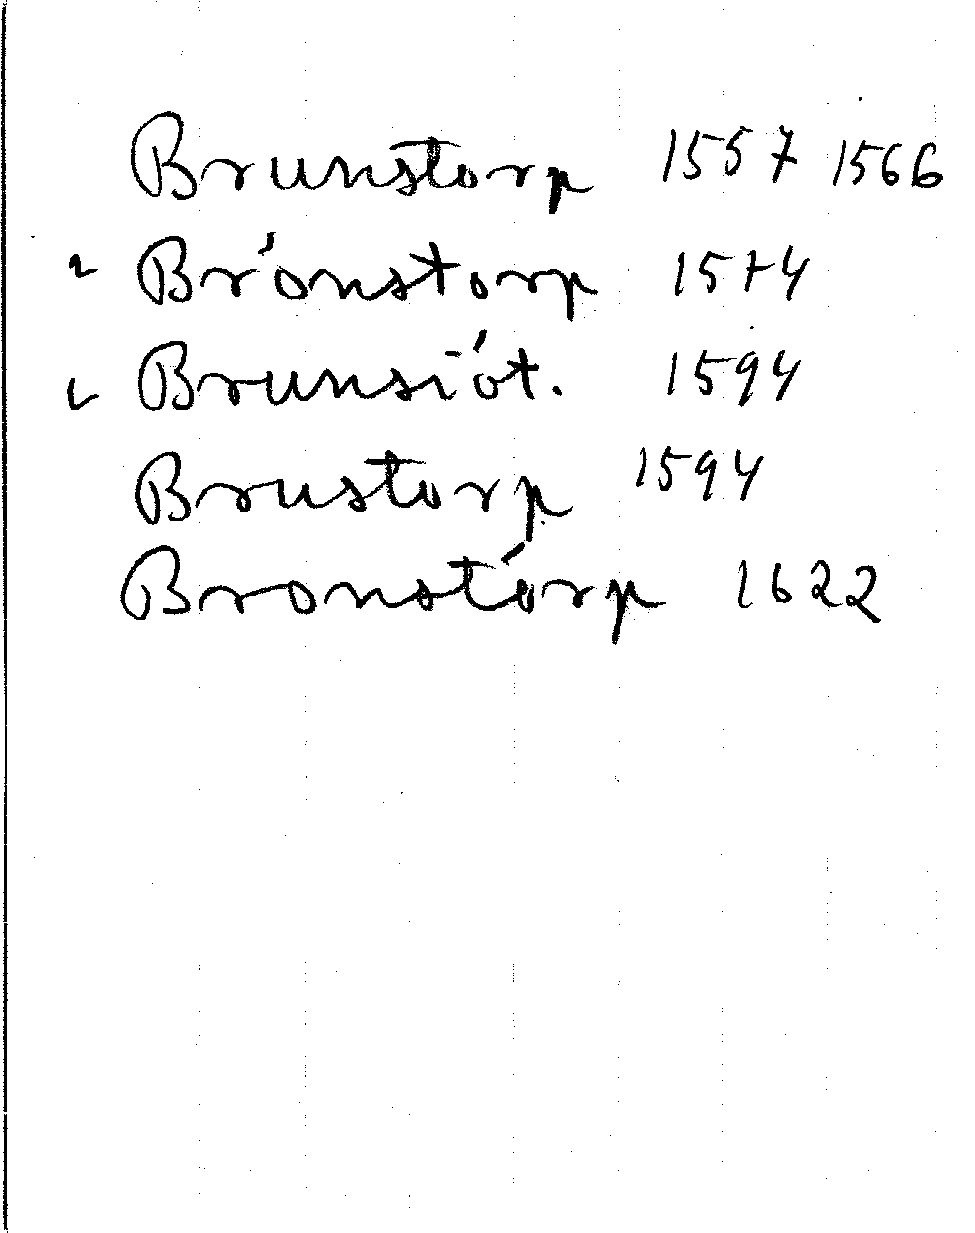 Brunstorp 1557 1566
Brónstorp 1574
Brunsiót. 1594
Brustorp 1594
Bronstórp 1622